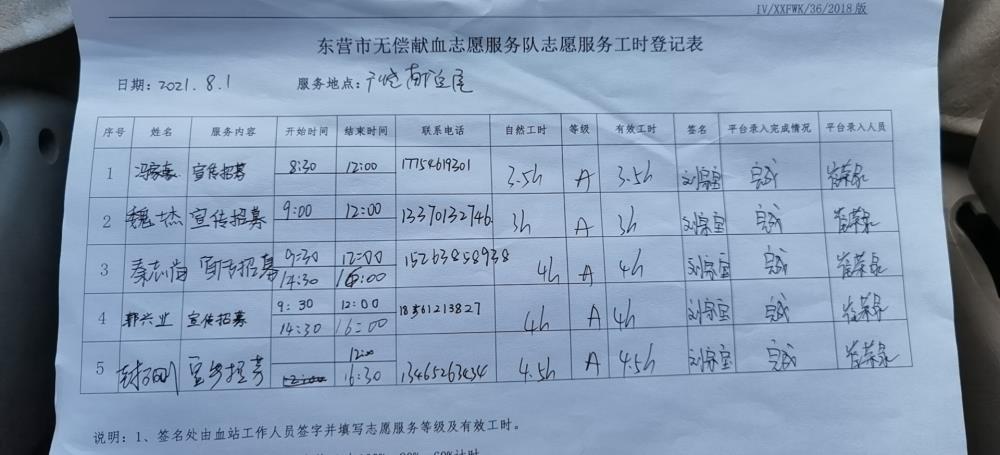 IV/XXFWK/36/2018版
东营市无偿献血志愿服务队志愿服务工时登记表
日期：2021.8.1 服务地点：
序号 姓名 服务内容 开始时间 结束时间 联系电话 自然工时 等级 有效工时 签名 平台录入完成情况 平台录入人员
1 宣传招募 8:30 12:00 17754619301 3.5h A 3.5h 完成
2 魏士杰 宣传招募 9:00 12:00 13370132746 3h A 3h 完成
3 秦志尚 宣传招募 9:30 12:00 15263858938 4h A 4h 完成
14:30 16:00
4 郭兴业 宣传招募 9:30 12:00 18561213827 4h A 4h 完成
14:30 16:00
5 宣传招募 12:00 13465263434 4.5h A 4.5h 完成
16:30
说明：1、签名处由血站工作人员签字并填写志愿服务等级及有效工时。